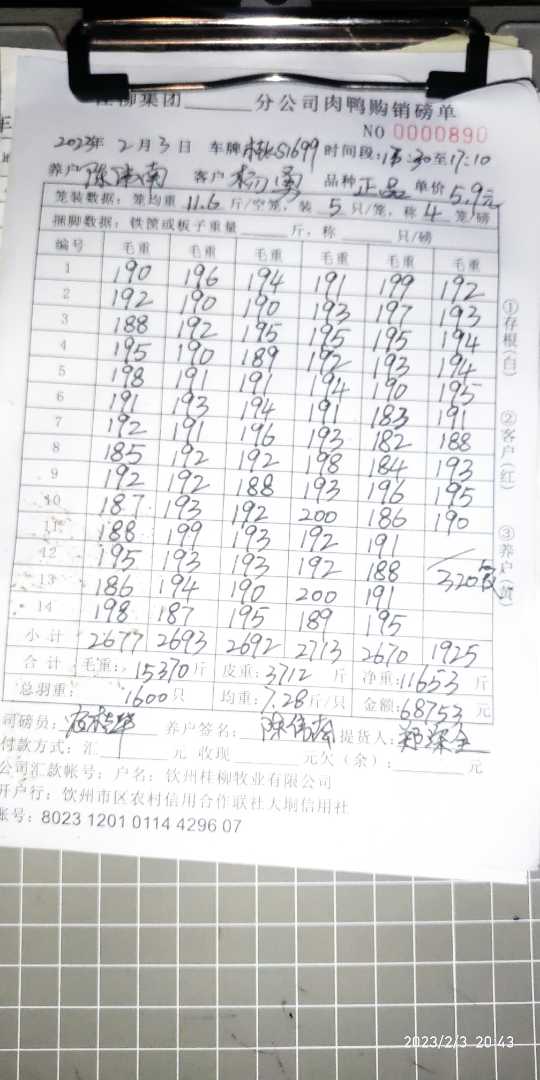 桂柳集团 分公司肉鸭购销磅单
NO 0000890
2023年 2月3日 车牌 时间段: 15:30至17:10
养户 客户 杨勇 品种 正品 单价 5.9元
笼装数据: 笼均重 11.6 斤/空笼, 装 5 只/笼, 称 4 笼/磅
捆脚数据: 铁筐或板子重量 斤, 称 只/磅
编号 毛重 毛重 毛重 毛重 毛重 毛重
1 190 196 194 191 199 192
2 192 190 190 193 197 193
3 188 192 195 195 195 194
4 195 190 189 192 193 194
5 198 191 191 194 190 195
6 191 193 194 191 183 191
7 192 191 196 193 182 188
8 185 192 192 198 184 193
9 192 192 188 193 196 195
10 187 193 192 200 186 190
11 188 199 193 192 191
12 195 193 193 192 188
320
13 186 194 190 200 191
14 198 187 195 189 195
小计 2677 2693 2692 2713 2670 1925
合计 毛重: 15370 斤 皮重: 3712 斤 净重: 11653 斤
总羽重: 1600 只 均重: 7.28 斤/只 金额: 68753 元
司磅员: 养户签名: 陈伟松 提货人:
付款方式: 汇 元 收现 元欠(余): 元
公司汇款帐号: 户名: 钦州桂柳牧业有限公司
开户行: 钦州市区农村信用合作联社大垌信用社
账号: 8023 1201 0114 4296 07
①存根(白) ②客户(红) ③养户(黄)
2023/2/3 20:43